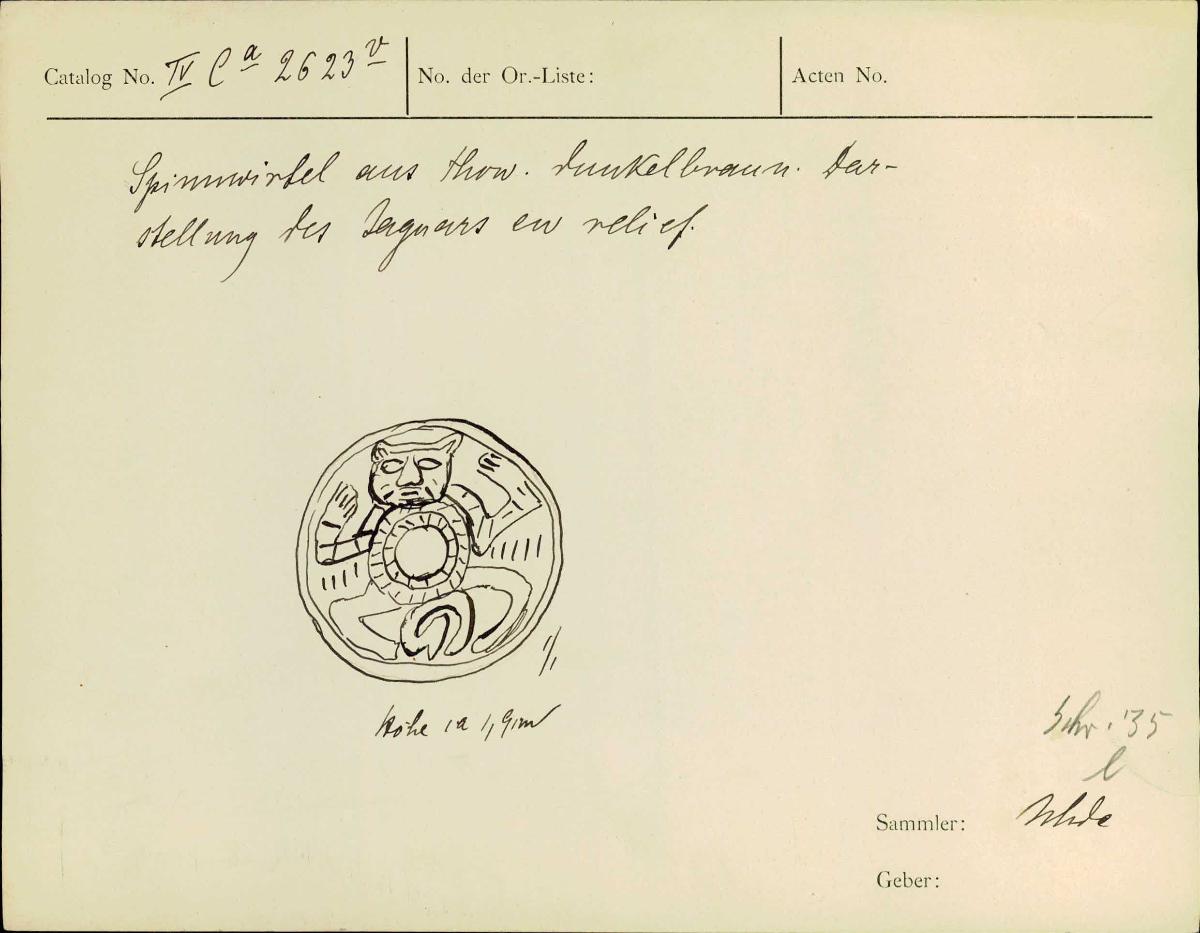 Catalog No. IV Ca 2623 v
No. der Or.-Liste:
Acten No.
Spinnwirtel aus Thon. dunkelbraun. Dar-
stellung des Jaguars en relief.
1/1
Höhe ca 1,9 cm
Schr. 35
l
Sammler: Uhde
Geber: